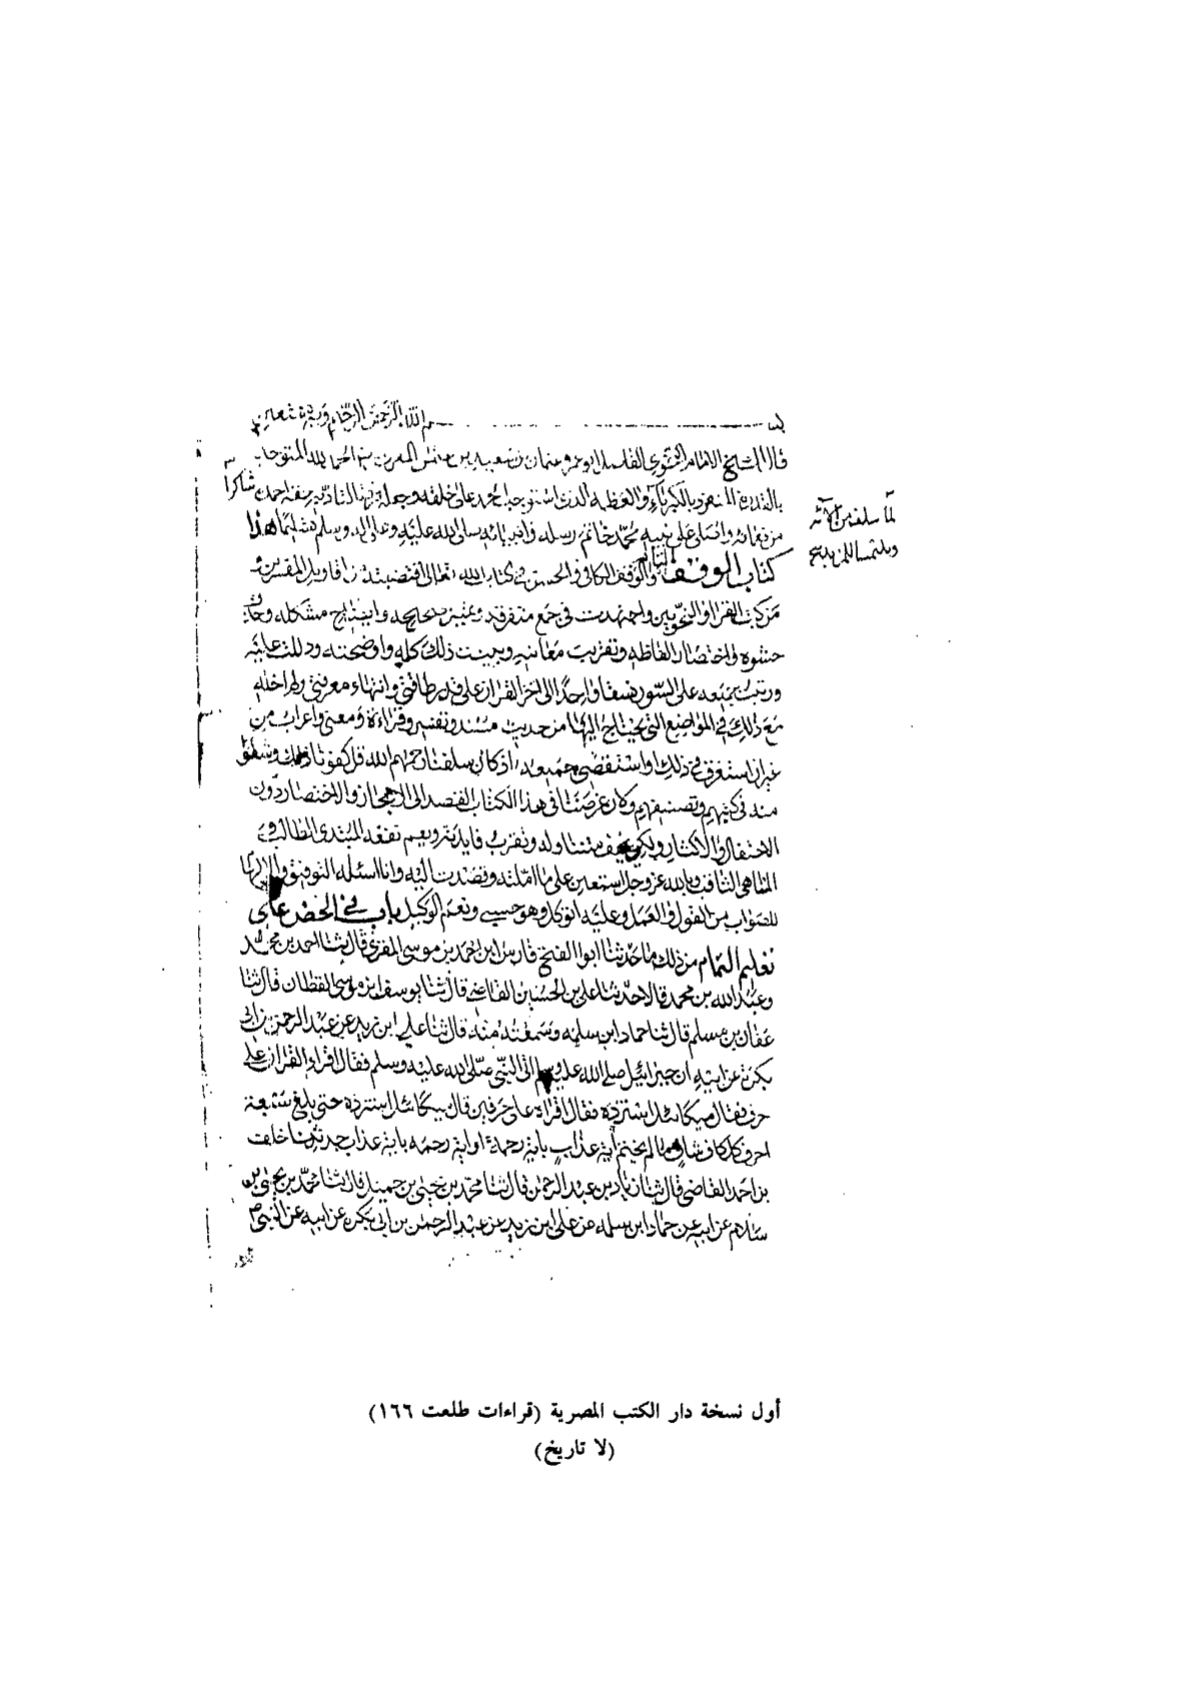 بسم الله الرحمن الرحيم وبه نستعين
قال الشيخ الامام المقري ابو عمرو عثمان بن سعيد بن عثمن المقري الحمد لله المتوحد
بالقدرة المنفرد بالكبرياء والعظمة الذي استوجب الحمد على خلقه احمده شاكرا
لما سلف من الآئه
وملتمسا للمزيد
من نعمائه واصلي على نبيه محمد خاتم رسله وانبيائه صلى الله عليه وعلى اله وسلم تسليما هذا
كتاب الوقف التام والوقف الكافي والحسن في كتاب الله تعالى اقتضبته من اقاويل المفسرين و
من كتب القراء والنحويين واجتهدت في جمع متفرقه وتمييز صحيحه وايضاح مشكله وحذف
حشوه واختصار الفاظه وتقريب معانيه وبينت ذلك كله واوضحته ودللت عليه
ورتبت جميعه على السور نسقا واحدا الى اخر القران على قدر طاقتي وانتهاء معرفتي ولم اخله
مع ذلك في المواضع التي يحتاج اليها من حديث مسند وتفسير وقراءة ومعنى واعراب من
غير ان استغرق في ذلك او استقصي جميعه اذ كان سلفنا رحمهم الله قد كفونا ذلك وشفوا
منه في كتبهم وتصنيفهم وكان غرضنا في هذا الكتاب القصد الى الايجاز والاختصار دون
الاحتفال والاكثار ولكي يخف متناوله وتقرب فايدته ويعم نفعه المبتدي الطالب و
المتناهي الثاقب وبالله عز وجل استعين على ما املته وقصدت اليه واياه اسئله التوفيق والالهام
للصواب من القول والعمل وعليه اتوكل وهو حسبي ونعم الوكيل باب في الحض على
تعليم التمام من ذلك ما حدثنا ابو الفتح فارس ابن احمد بن موسى المقري قال ثنا احمد بن محمد
وعبد الله بن محمد قالا حدثنا علي بن الحسين القاضي قال ثنا يوسف ابن موسى القطان قال ثنا
عفان بن مسلم قال ثنا حماد ابن سلمه وسمعته منه قال ثنا علي ابن زيد عن عبد الرحمن بن ابي
بكرة عن ابيه ان جبرائيل صلى الله عليه وسلم اتى النبي صلى الله عليه وسلم فقال اقراء القران على
حرف فقال ميكائيل استزده فقال اقراه على حرفين قال ميكائيل استزده حتى بلغ سبعة
احرف كل كاف شاف ما لم يختم اية عذاب باية رحمة او اية رحمه باية عذاب حدثنا خلف
بن احمد القاضي قال ثنا زياد بن عبد الرحمن قال ثنا محمد بن يحيى بن حميد قال ثنا محمد بن يحيى بن
سلام عن ابيه عن حماد ابن سلمه عن علي ابن زيد عن عبد الرحمن بن ابي بكرة عن ابيه عن النبي
أول نسخة دار الكتب المصرية (قراءات طلعت ١٦٦)
(لا تاريخ)